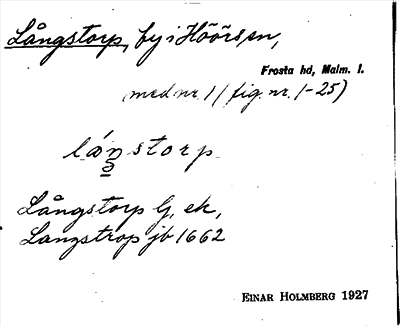 Långstorp, by i Höörs sn,
Frosta hd, Malm. l.
med nr. 1 (fig. nr. 1-25)
lánstorp
Långstorp G. ek,
Langstrop jb 1662
EINAR HOLMBERG 1927